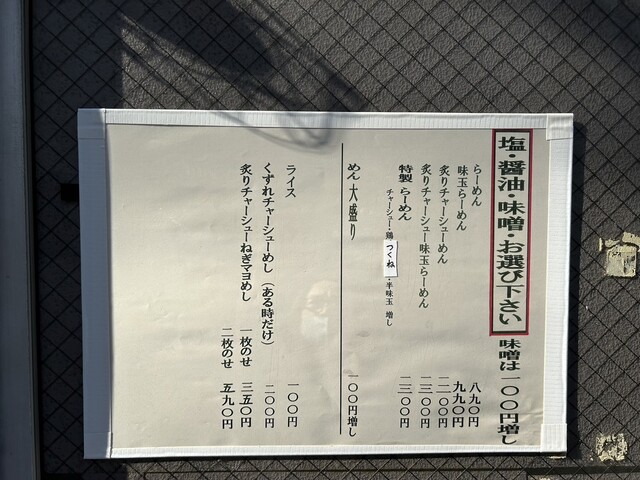 塩・醤油・味噌・お選び下さい 味噌は一〇〇円増し
らーめん 八九〇円
味玉らーめん 九九〇円
炙りチャーシューめん 一二〇〇円
炙りチャーシュー味玉らーめん 一三〇〇円
特製 らーめん 一三〇〇円
チャーシュー・鶏つくね・半味玉 増し
めん 大盛り 一〇〇円増し
ライス 一〇〇円
くずれチャーシューめし（ある時だけ） 二〇〇円
炙りチャーシューねぎマヨめし 一枚のせ 三五〇円
二枚のせ 五九〇円